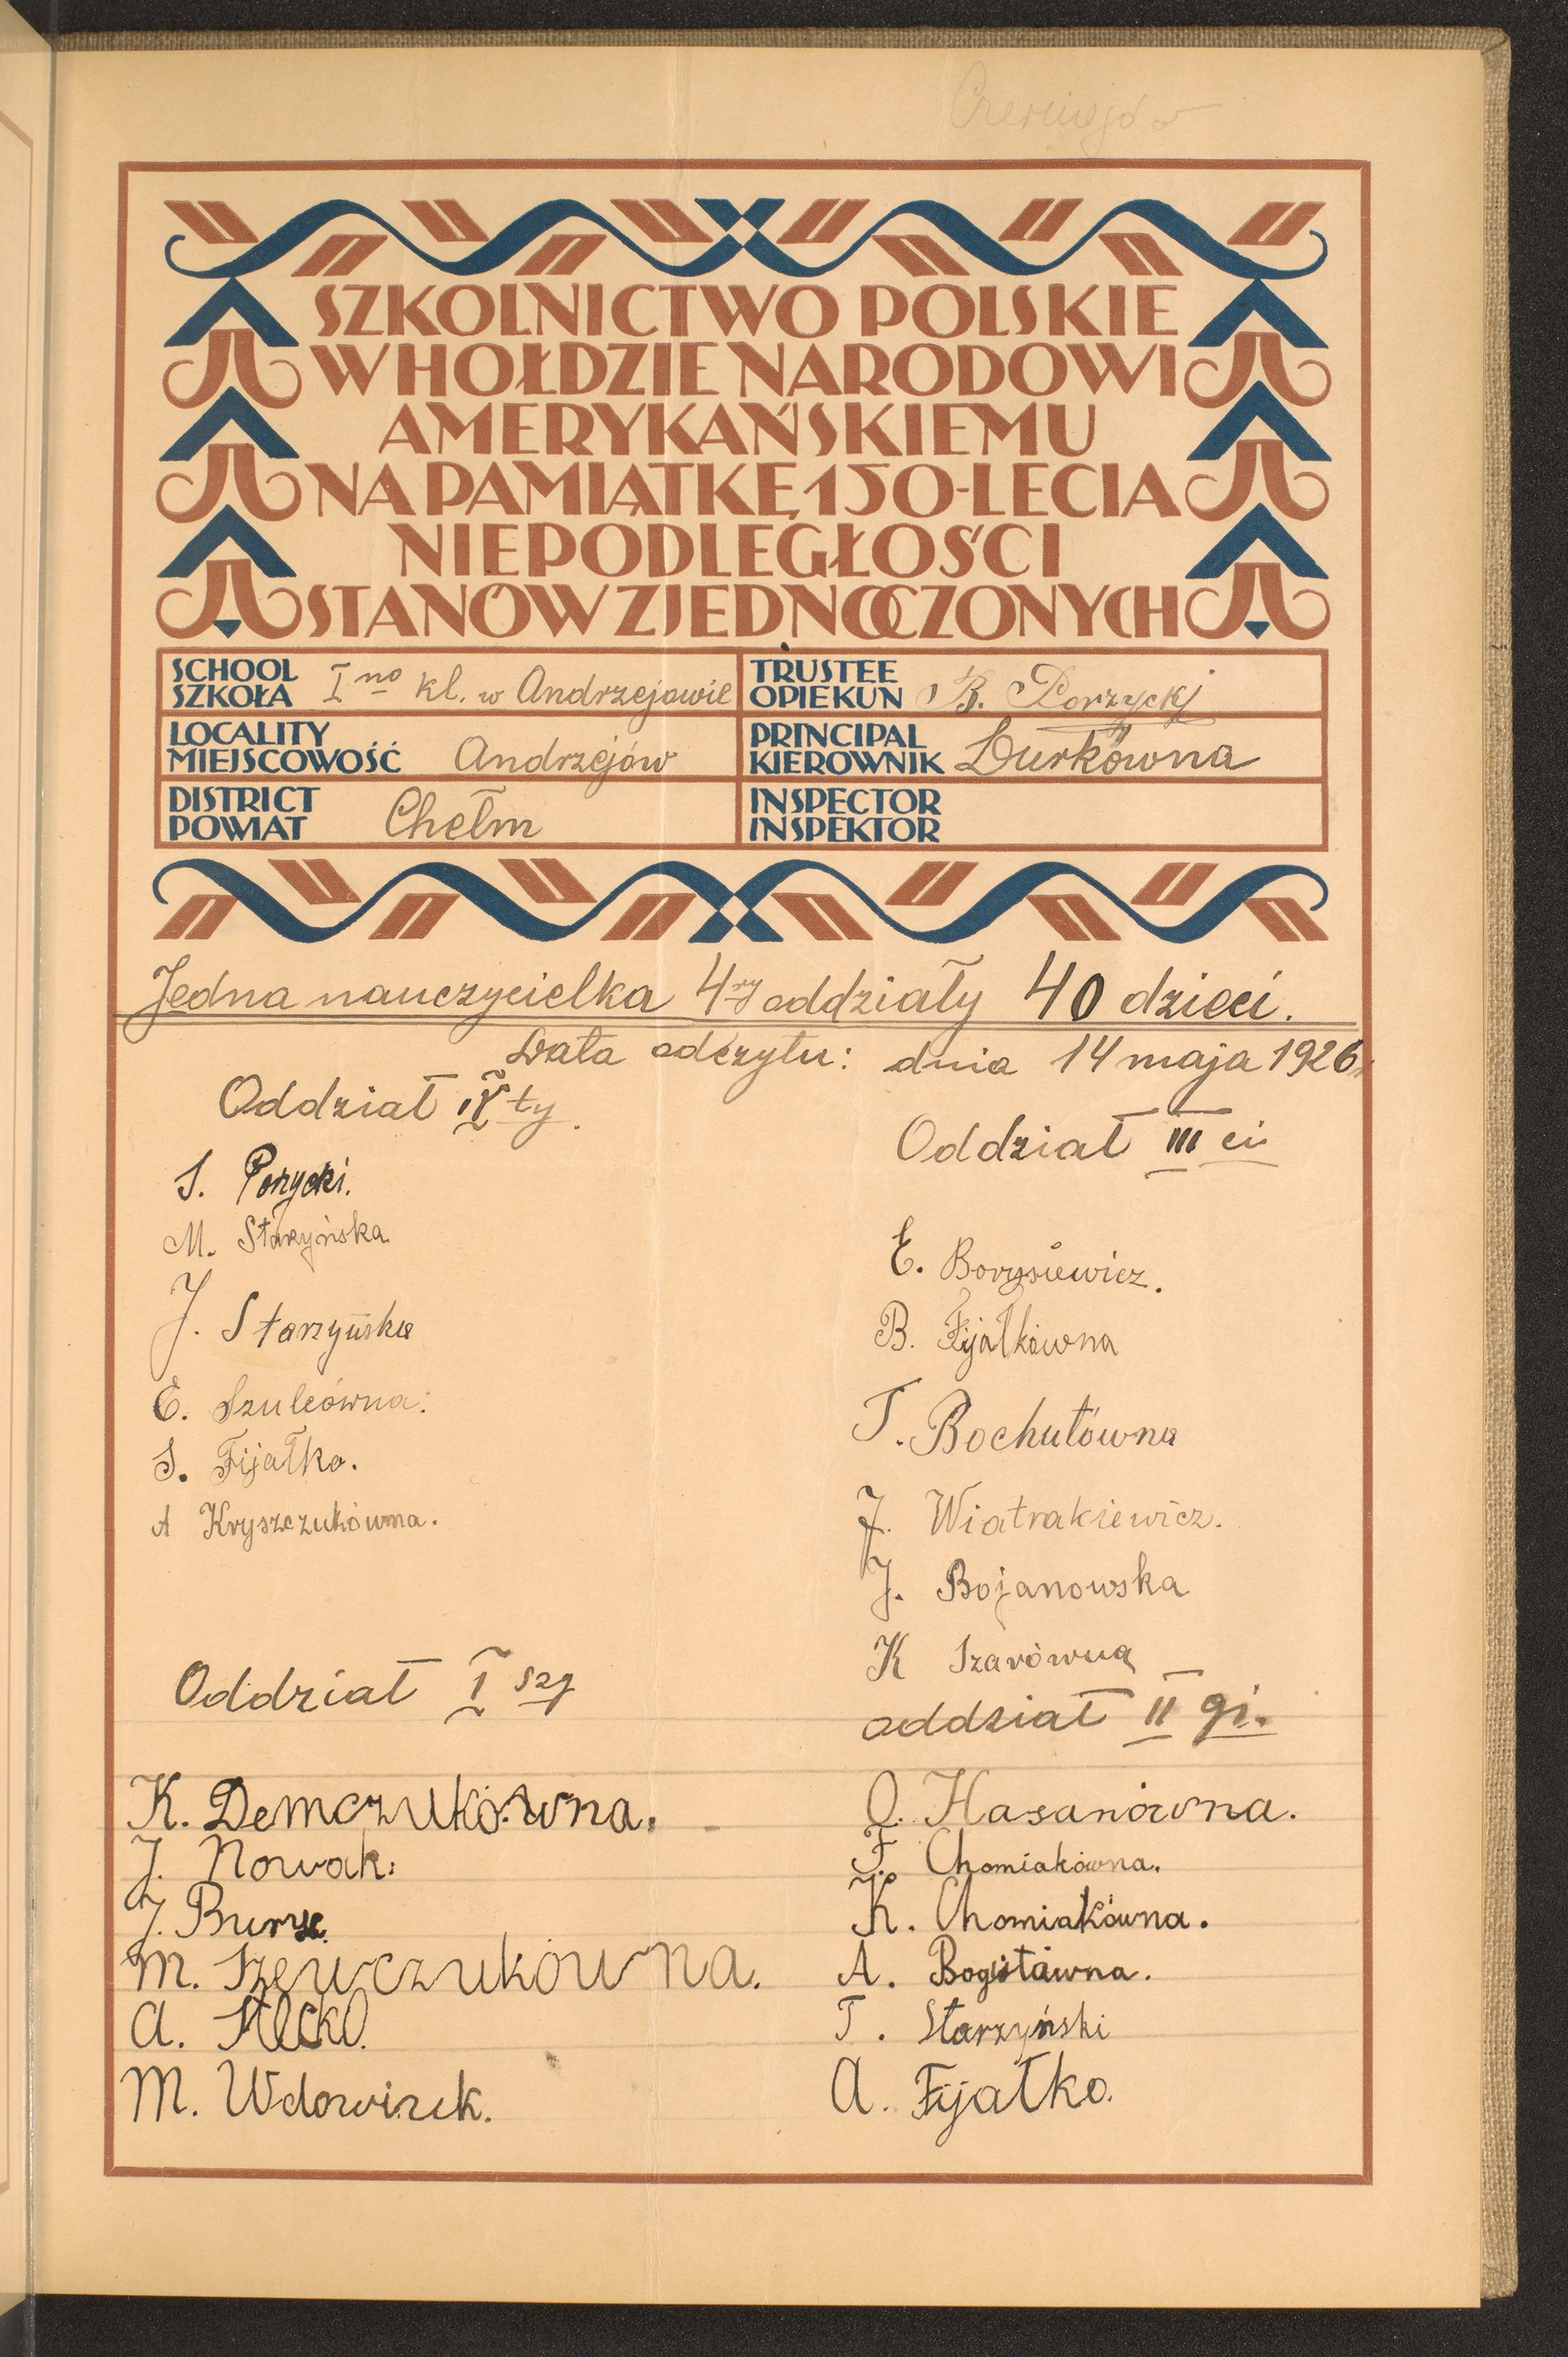 Czerniejów
SZKOLNICTWO POLSKIE
W HOŁDZIE NARODOWI
AMERYKAŃSKIEMU
NA PAMIĄTKĘ 150-LECIA
NIEPODLEGŁOŚCI
STANÓW ZJEDNOCZONYCH
SCHOOL
SZKOŁA I no kl. w Andrzejowie
TRUSTEE
OPIEKUN B. Porzycki
LOCALITY
MIEJSCOWOŚĆ Andrzejów
PRINCIPAL
KIEROWNIK Durkówna
DISTRICT
POWIAT Chełm
INSPECTOR
INSPEKTOR
Jedna nauczycielka 4ry oddziały 40 dzieci.
Data odczytu: dnia 14 maja 1926
Oddział IV ty.
S. Porzycki.
M. Starzyńska
J. Starzyńska
E. Szulcówna.
S. Fijałko.
A Kryszczukówna.
Oddział III ci
E. Borysiewicz.
B. Fijałkówna
T. Bochutówna
J. Wiatrakiewicz.
J. Bojanowska
K Szarówna
Oddział I szy
K. Demczukówna.
J. Nowak.
J.
M. Szewczukówna.
A.
M.
oddział II gi.
O. Hasanówna.
F. Chomiakówna.
K. Chomiakówna.
A.
T. Starzyński
A. Fijałko.